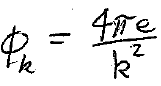 ϕₖ = 4πe / k²